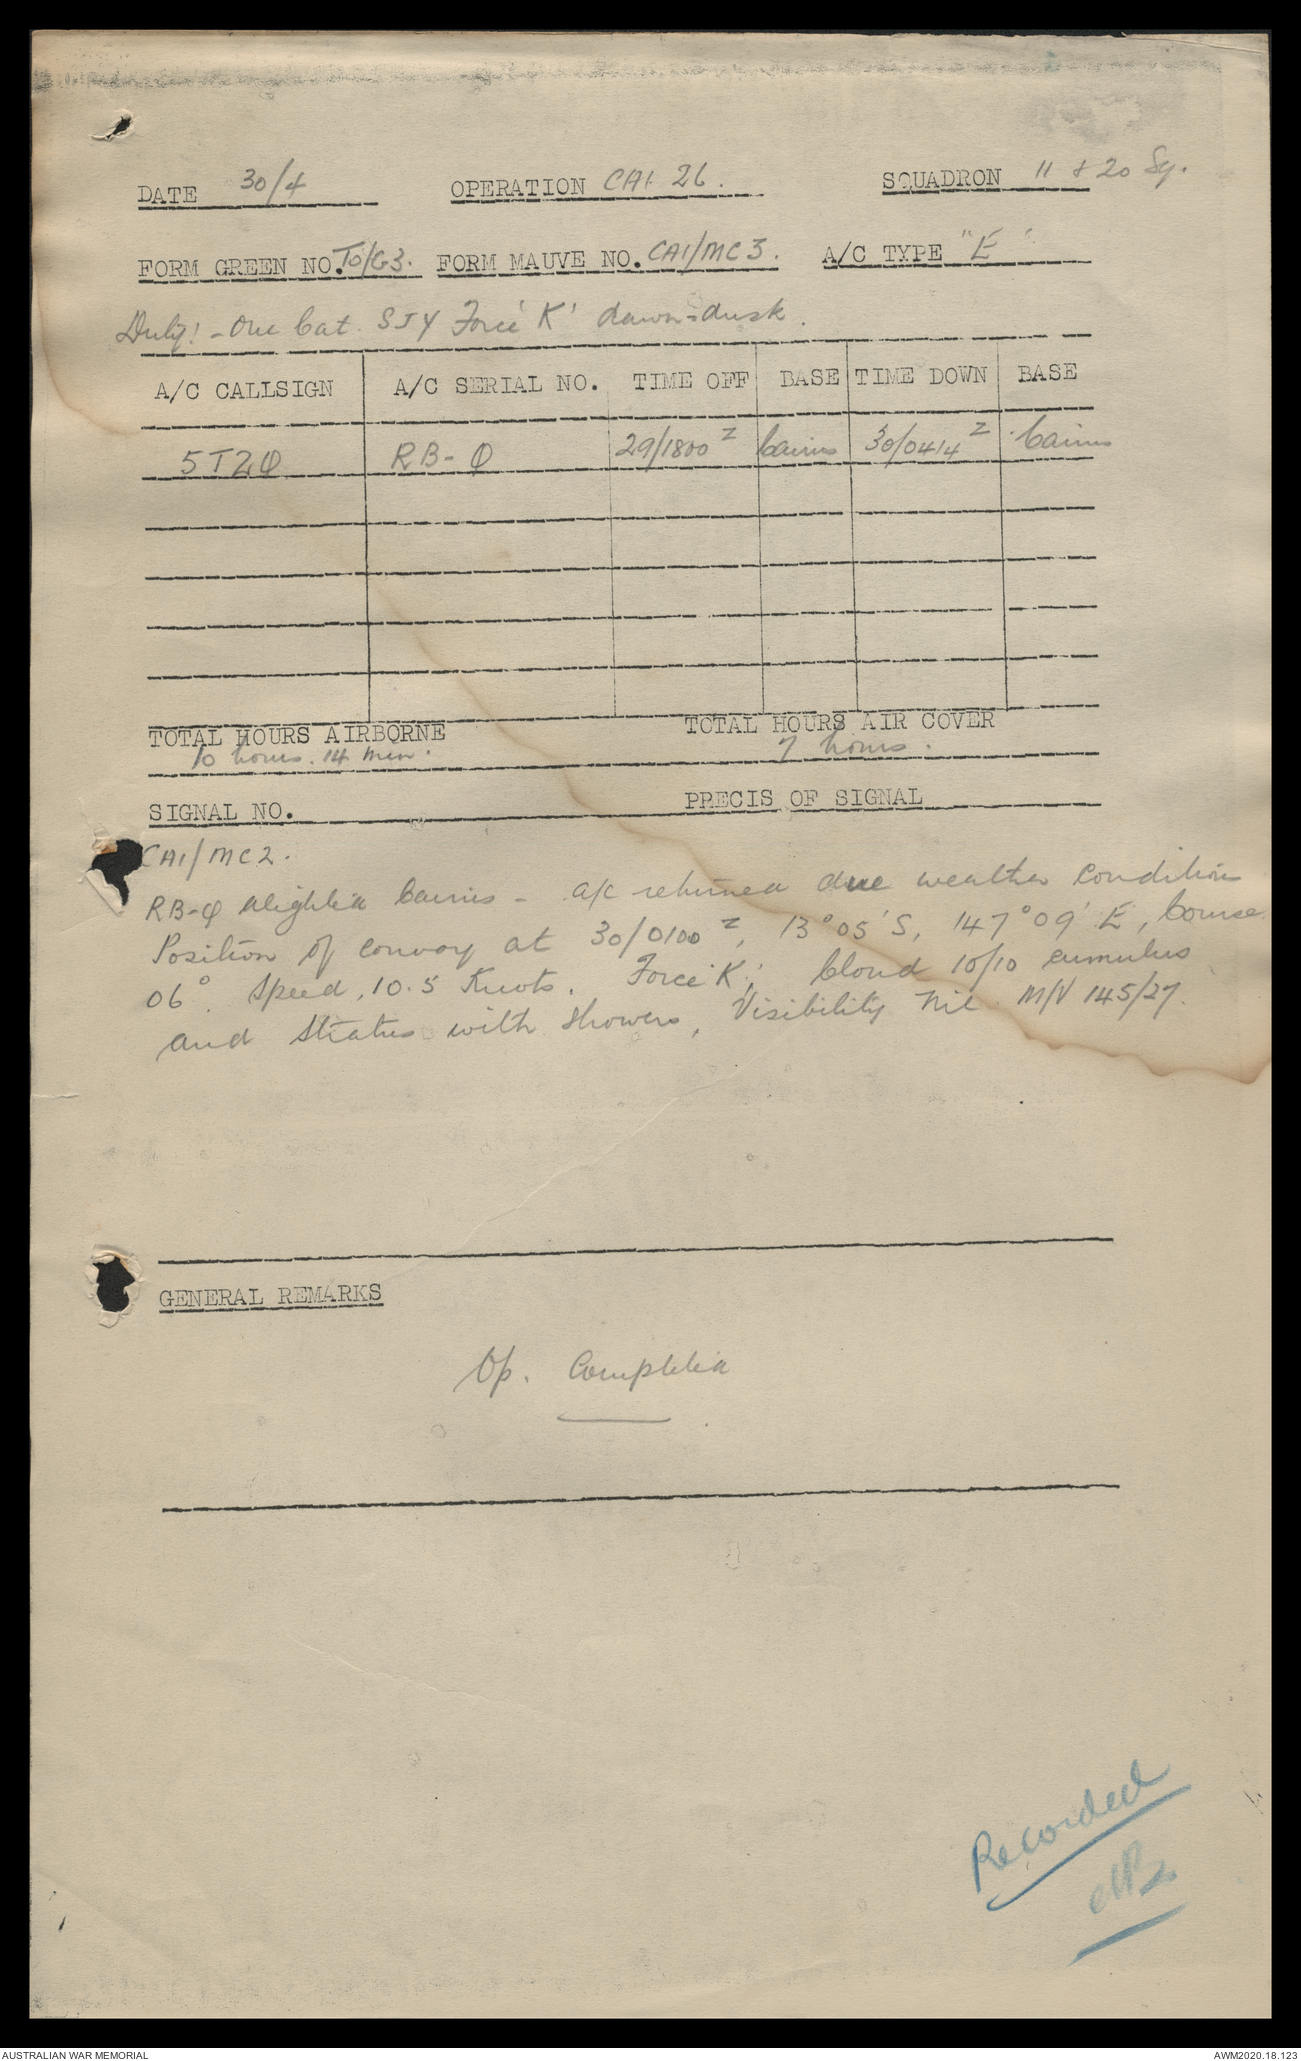 DATE 30/4 OPERATION CAI 26. SQUADRON 11 & 20 Sq.
FORM GREEN NO. TO/G3. FORM MAUVE NO. CAI/MC3. A/C TYPE "E"
Duty:- One Cat. SJY Force 'K' dawn-dusk.
A/C CALLSIGN A/C SERIAL NO. TIME OFF BASE TIME DOWN BASE
5TZQ RB-Q 29/1800 Z Cairns 30/0414 Z Cairns
TOTAL HOURS AIRBORNE TOTAL HOURS AIR COVER
10 hours. 14 min. 7 hours.
SIGNAL NO. PRECIS OF SIGNAL
CAI/MC2.
RB-Q alighted Cairns - a/c returned due weather condition
Position of convoy at 30/0100 Z, 13°05'S, 147°09'E, Course
06° Speed, 10.5 Knots. Force 'K', Cloud 10/10 cumulus
and Stratus with showers, Visibility nil. M/V 145/27.
GENERAL REMARKS
Op. Completed
Recorded
AUSTRALIAN WAR MEMORIAL AWM2020.18.123